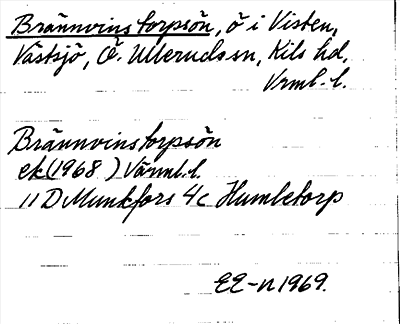 Brännvinstorpsön, ö i Visten,
Västsjö, Ö. Ullerudssn, Kils hd,
Vrml. l.
Brännvinstorpsön
ek (1968) Värml. l.
11 D Munkfors 4c Humletorp
EE-n 1969.